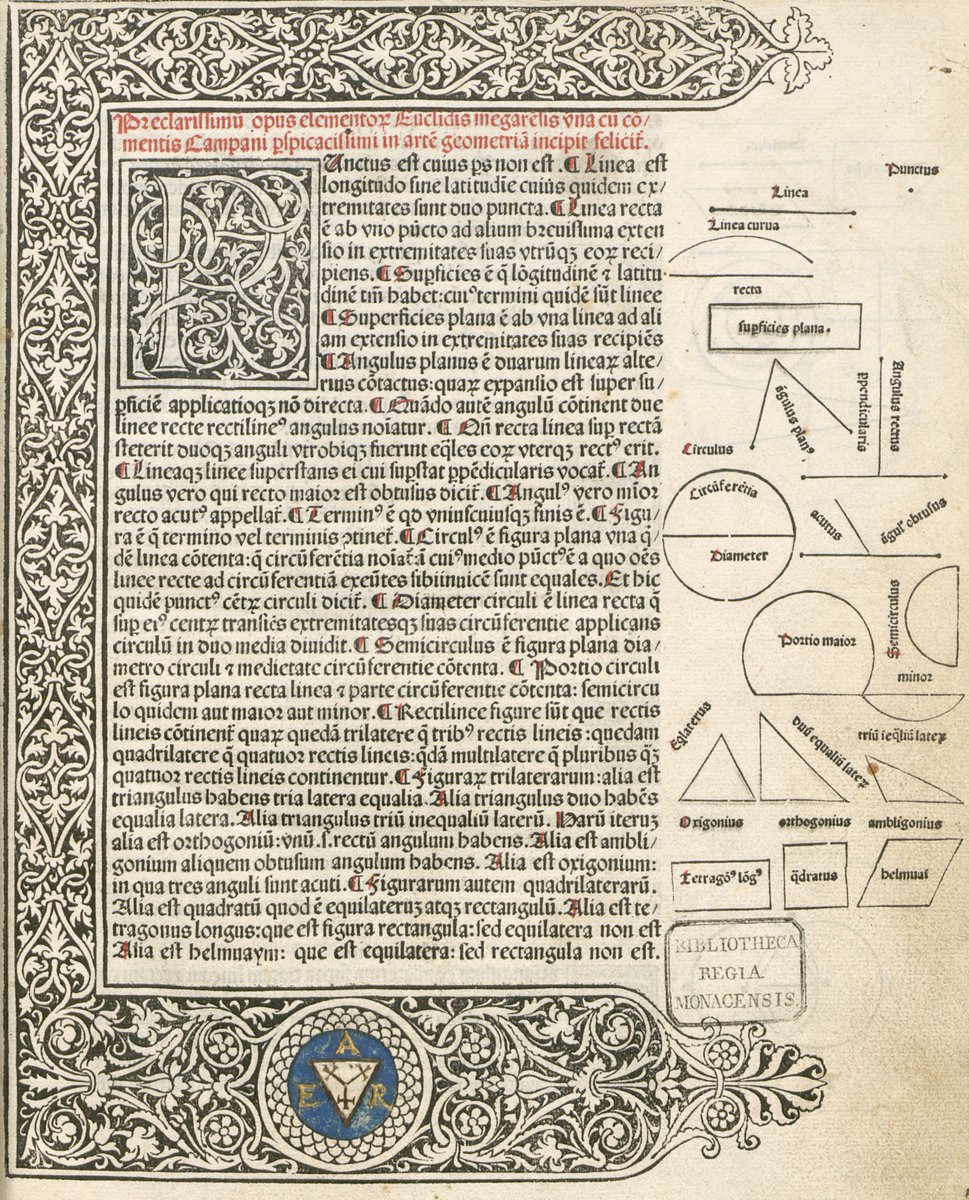 Preclarissimū opus elementoꝝ Euclidis megarēsis vna cū cō/
mentis Campani ꝑspicacissimi in artē geometriā incipit felicit̄.
PUnctus est cuius ꝑs non est. ¶ Linea est
longitudo sine latitudīe cuius quidem ex/
tremitates sunt duo puncta. ¶ Linea recta
ē ab vno pūcto ad alium breuissima exten
sio in extremitates suas vtrūqꝫ eoꝝ reci/
piens. ¶ Suꝑficies ē q̄ lōgitudinē ⁊ latitu-
dinē tm̄ habet: cuiꝰ termini quidē sūt linee
¶ Superficies plana ē ab vna linea ad ali
am extensio in extremitates suas recipiēs
¶ Angulus planus ē duarum lineaꝝ alte/
rius cōtactus: quaꝝ expansio est super su/
ꝑficiē applicatioqꝫ nō directa. ¶ Quādo autē angulū cōtinent due
linee recte rectilineꝰ angulus noīatur. ¶ Qn̄ recta linea suꝑ rectā
steterit duoqꝫ anguli vtrobiqꝫ fuerint eq̄les eoꝝ vterqꝫ rectꝰ erit.
¶ Lineaqꝫ linee superstans ei cui supstat ꝑpēdicularis vocat̄. ¶ An
gulus vero qui recto maior est obtusus dicit̄. ¶ Angulꝰ vero mīor
recto acutꝰ appellat̄. ¶ Terminꝰ ē qd vniuscuiusqꝫ finis ē. ¶ Figu/
ra ē q̄ termino vel terminis ↄtinet̄. ¶ Circulꝰ ē figura plana vna q̄/
dē linea cōtenta: q̄ circūferētia noīat̄: ī cuiꝰ medio pūctꝰ ē a quo oēs
linee recte ad circūferentiā exeūtes sibiinuicē sunt equales. Et hic
quidē punctꝰ cētꝝ circuli dicit̄. ¶ Diameter circuli ē linea recta q̄
suꝑ eiꝰ centꝝ transiēs extremitatesqꝫ suas circūferentie applicans
circulū in duo media diuidit. ¶ Semicirculus ē figura plana dia/
metro circuli ⁊ medietate circūferentie cōtenta. ¶ Portio circuli
est figura plana recta linea ⁊ parte circūferentie cōtenta: semicircu
lo quidem aut maior aut minor. ¶ Rectilinee figure sūt que rectis
lineis cōtinent̄ quaꝝ quedā trilatere q̄ tribꝰ rectis lineis: quedam
quadrilatere q̄ quatuor rectis lineis: q̄dā multilatere q̄ pluribus qꝫ
quatuor rectis lineis continentur. ¶ Figuraꝝ trilaterarum: alia est
triangulus habens tria latera equalia. Alia triangulus duo habēs
equalia latera. Alia triangulus triū inequaliū laterū. Harū iteruꝫ
alia est orthogoniū: vnū .s. rectū angulum habens. Alia est ambli/
gonium aliquem obtusum angulum habens. Alia est oxigonium:
in qua tres anguli sunt acuti. ¶ Figurarum autem quadrilaterarū.
Alia est quadratū quod ē equilateruꝫ atqꝫ rectangulū. Alia est te/
tragonus longus: que est figura rectangula: sed equilatera non est
Alia est helmuaym: que est equilatera: sed rectangula non est.
Punctus
Linea
Linea curua
recta
supficies plana.
āgulus planꝰ
ꝑpendicularis
Angulus rectus
Circulus
Circūferētia
Diameter
acutus
āgulꝰ obtusus
Portio maior
Semicirculus
minor
Eqlaterus
duū equaliū lateꝝ
triū īeq̄liū lateꝝ
Oxigonius
orthogonius
ambligonius
Tetragōꝰ lōgꝰ
q̄dratus
helmuaī
BIBLIOTHECA
REGIA
MONACENSIS.
A
E R